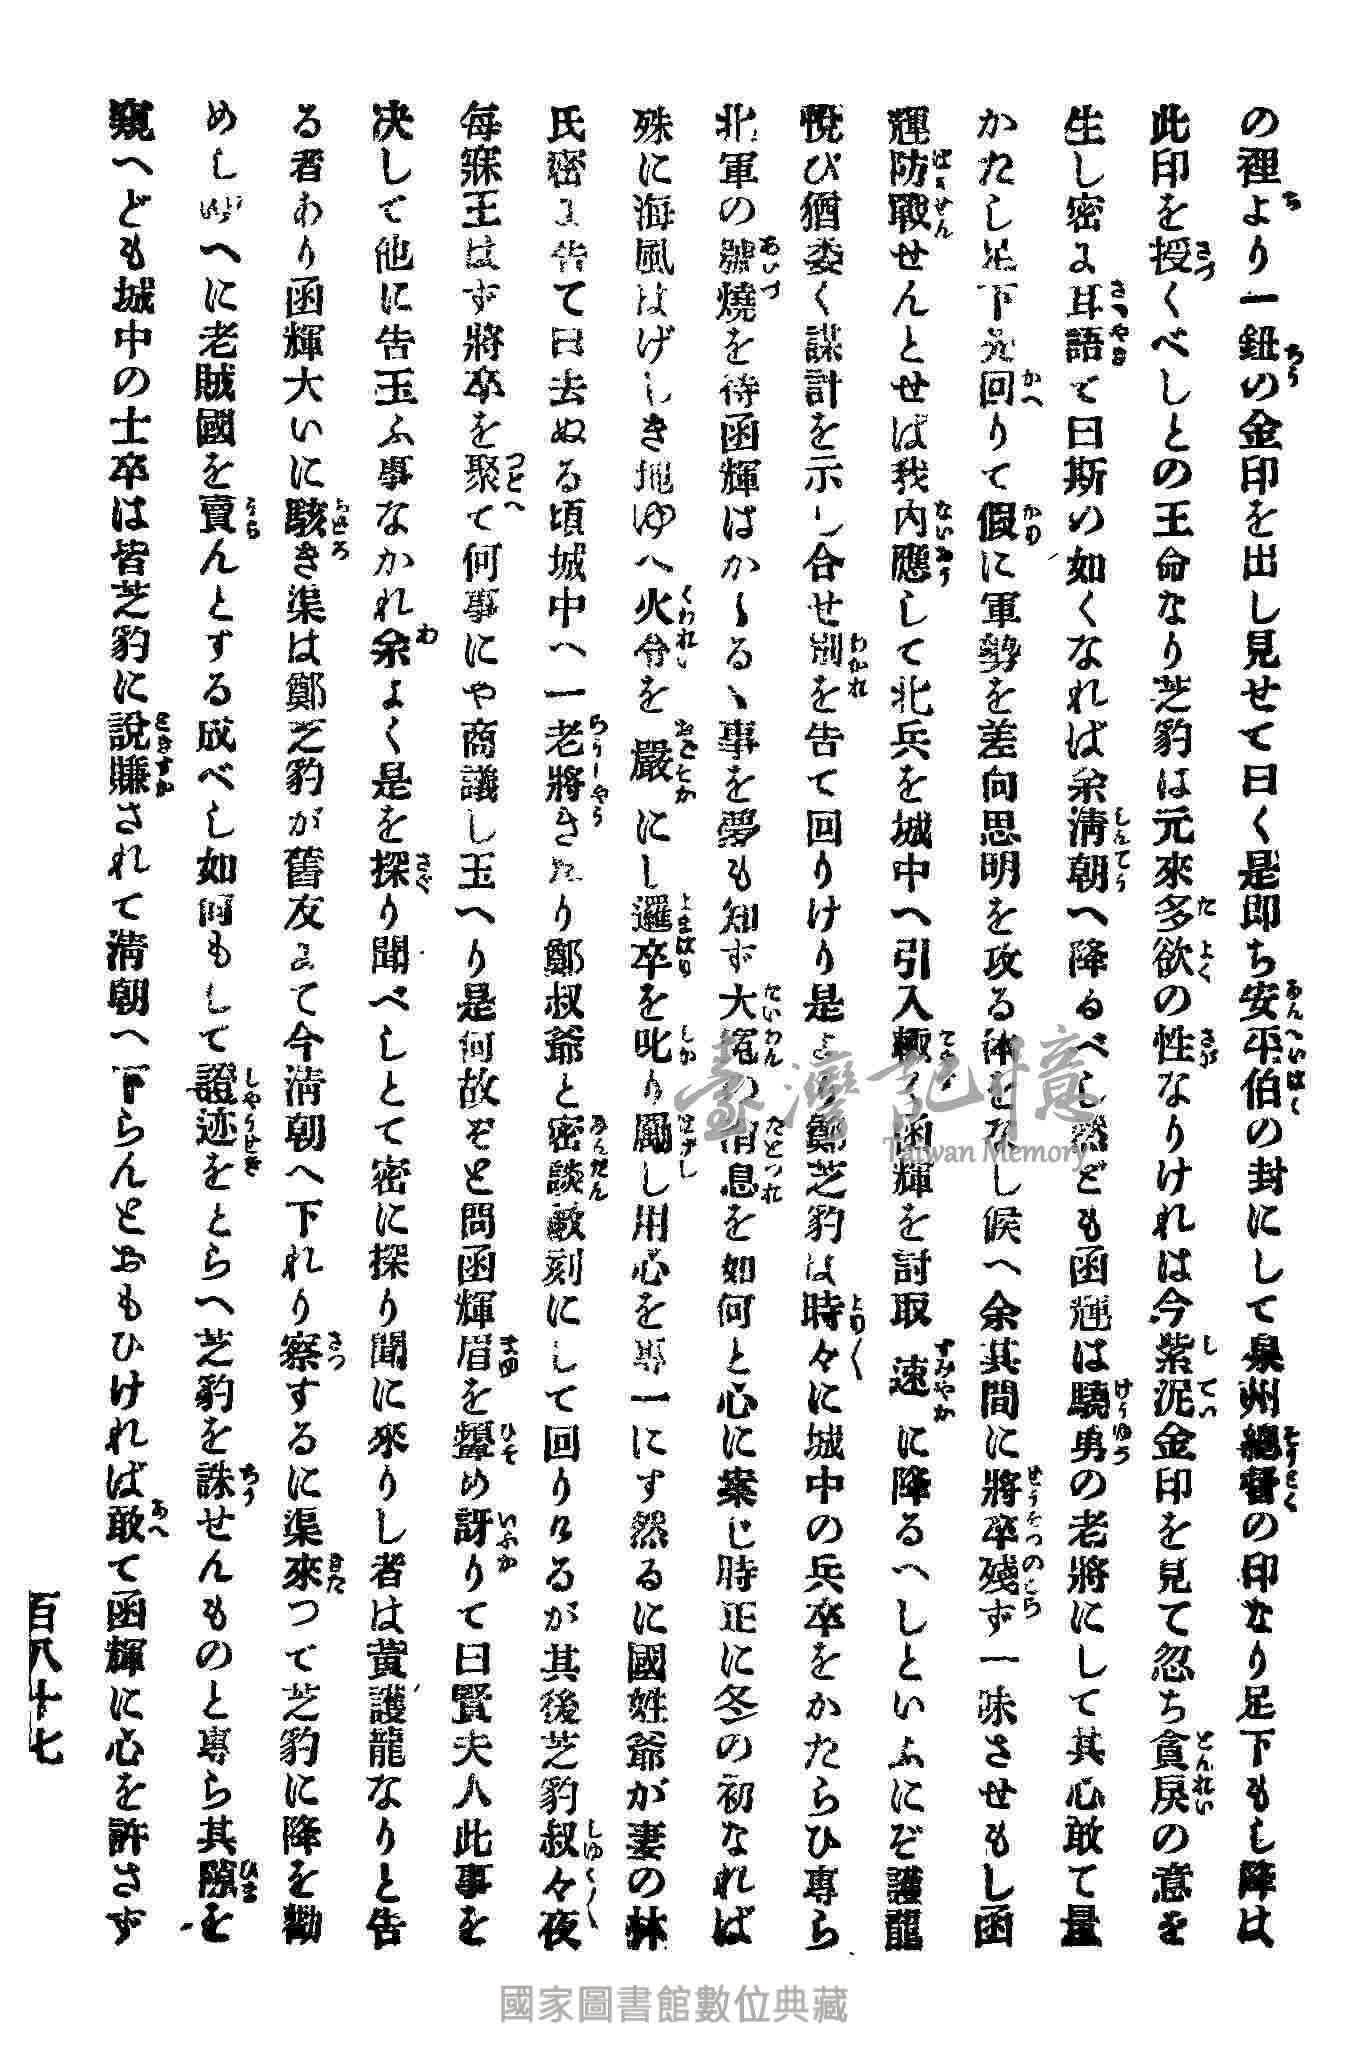 の裡より一鈕の金印を出し見せて曰く是即ち安平伯の封にして泉州總督の印なり足下もし降は
此印を授くべしとの王命なり芝豹は元來多欲の性なりけれは今紫泥金印を見て忽ち貪戻の意を
生し密に耳語て曰斯の如くなれば余淸朝へ降るべし然ども函輝は驍勇の老將にして其心敢て量
かたし足下先回りて假に軍勢を差向思明を攻る体をなし候へ余其間に將卒殘ず一味させもし函
輝防戰せんとせば我内應して北兵を城中へ引入函輝を討取速に降るへしといふにぞ護龍
悅び猶委く謀計を示し合せ別を告て回りけり是より鄭芝豹は時々に城中の兵卒をかたらひ專ら
北軍の號燒を待函輝はかゝる事を夢も知ず大寃の消息を如何と心に案じ時正に冬の初なれば
殊に海風はげしき地ゆへ火令を嚴にし邏卒を叱り勵し用心を專一にす然るに國姓爺が妻の林
氏密に告て曰去ぬる頃城中へ一老將きたり鄭叔爺と密談數刻にして回りけるが其後芝豹叔々夜
每寐王はず將卒を聚て何事にや商議し玉へり是何故ぞと問函輝眉を顰め訝りて曰賢夫人此事を
决して他に告玉ふ事なかれ余よく是を探り聞べしとて密に探り聞に來りし者は黄護龍なりと告
る者あり函輝大いに駭き渠は鄭芝豹が舊友にて今淸朝へ下れり察するに渠來つて芝豹に降を勸
めしゆへに老賊國を賣んとする成べし如何もして證迹をとらへ芝豹を誅せんものと專ら其隙を
窺へども城中の士卒は皆芝豹に說賺されて淸朝へ下らんとおもひければ敢て函輝に心を許さず
百八十七
臺灣記憶
Taiwan Memory
國家圖書館數位典藏